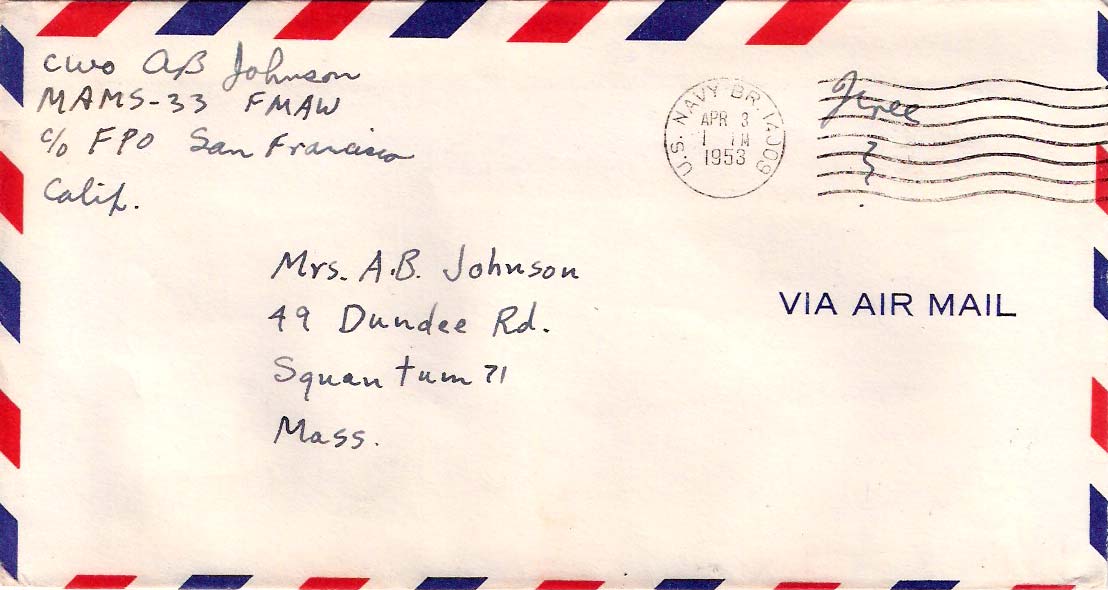 CWO AB Johnson
MAMS-33 FMAW
c/o FPO San Francisco
Calif.
U.S. NAVY BR. 14009
APR 3
1953
Free
Mrs. A.B. Johnson
49 Dundee Rd.
Squantum 71
Mass.
VIA AIR MAIL